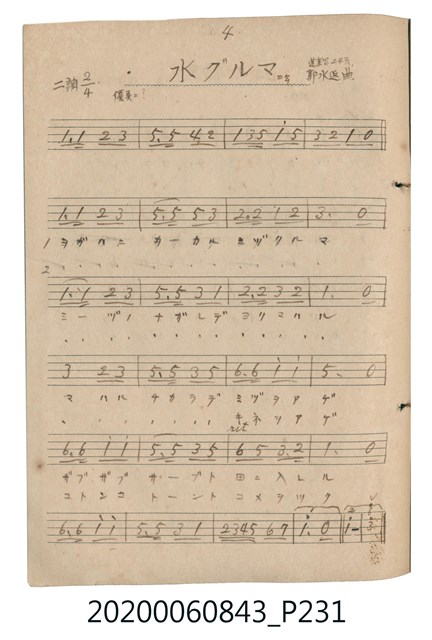 4
水グルマ
二調 2/4
郭水返曲
1.1 2 3 | 5.5 4 2 | 1 3 5 i 5 | 3 2 1 0
1.1 2 3 | 5.5 5 3 | 2.2 1 2 | 3. 0
1 ヲガハニ カーカル ミヅグルマ
2
1.1 2 3 | 5.5 3 1 | 2.2 3 2 | 1. 0
ミーヅノ ナガレデ ヨリマハル
3 2 3 | 5.5 3 5 | 6.6 i i | 5. 0
マハル チカラデ ミヅヲアゲ
キネヲアゲ
rit
6.6 i i | 5.5 3 5 | 6 5 3.2 | 1. 0
ザブザブ ザーブト 田ニ入レル
コトンコ トーント コメヲツク
6.6 i i | 5.5 3 1 | 2345 6 7 | i. 0 | i -
20200060843_P231